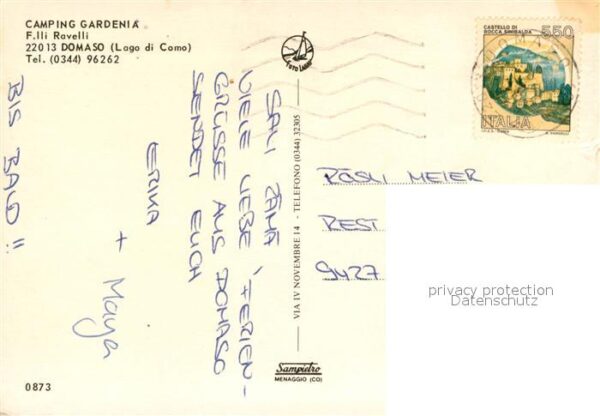 CAMPING GARDENIA
F.lli Ravelli
22013 DOMASO (Lago di Como)
Tel. (0344) 96262
SALI ZÄMÄ
VIELE LIEBE FERIEN-
GRÜSSE AUS DOMASO
SENDET EUCH
ERIKA
+ Maya
BIS BALD !!
0873
VIA IV NOVEMBRE 14 - TELEFONO (0344) 32305
Sampietro
MENAGGIO (CO)
CASTELLO DI
ROCCA SINIBALDA
550
ITALIA
RÖSLI MEIER
REST
9427
privacy protection
Datenschutz